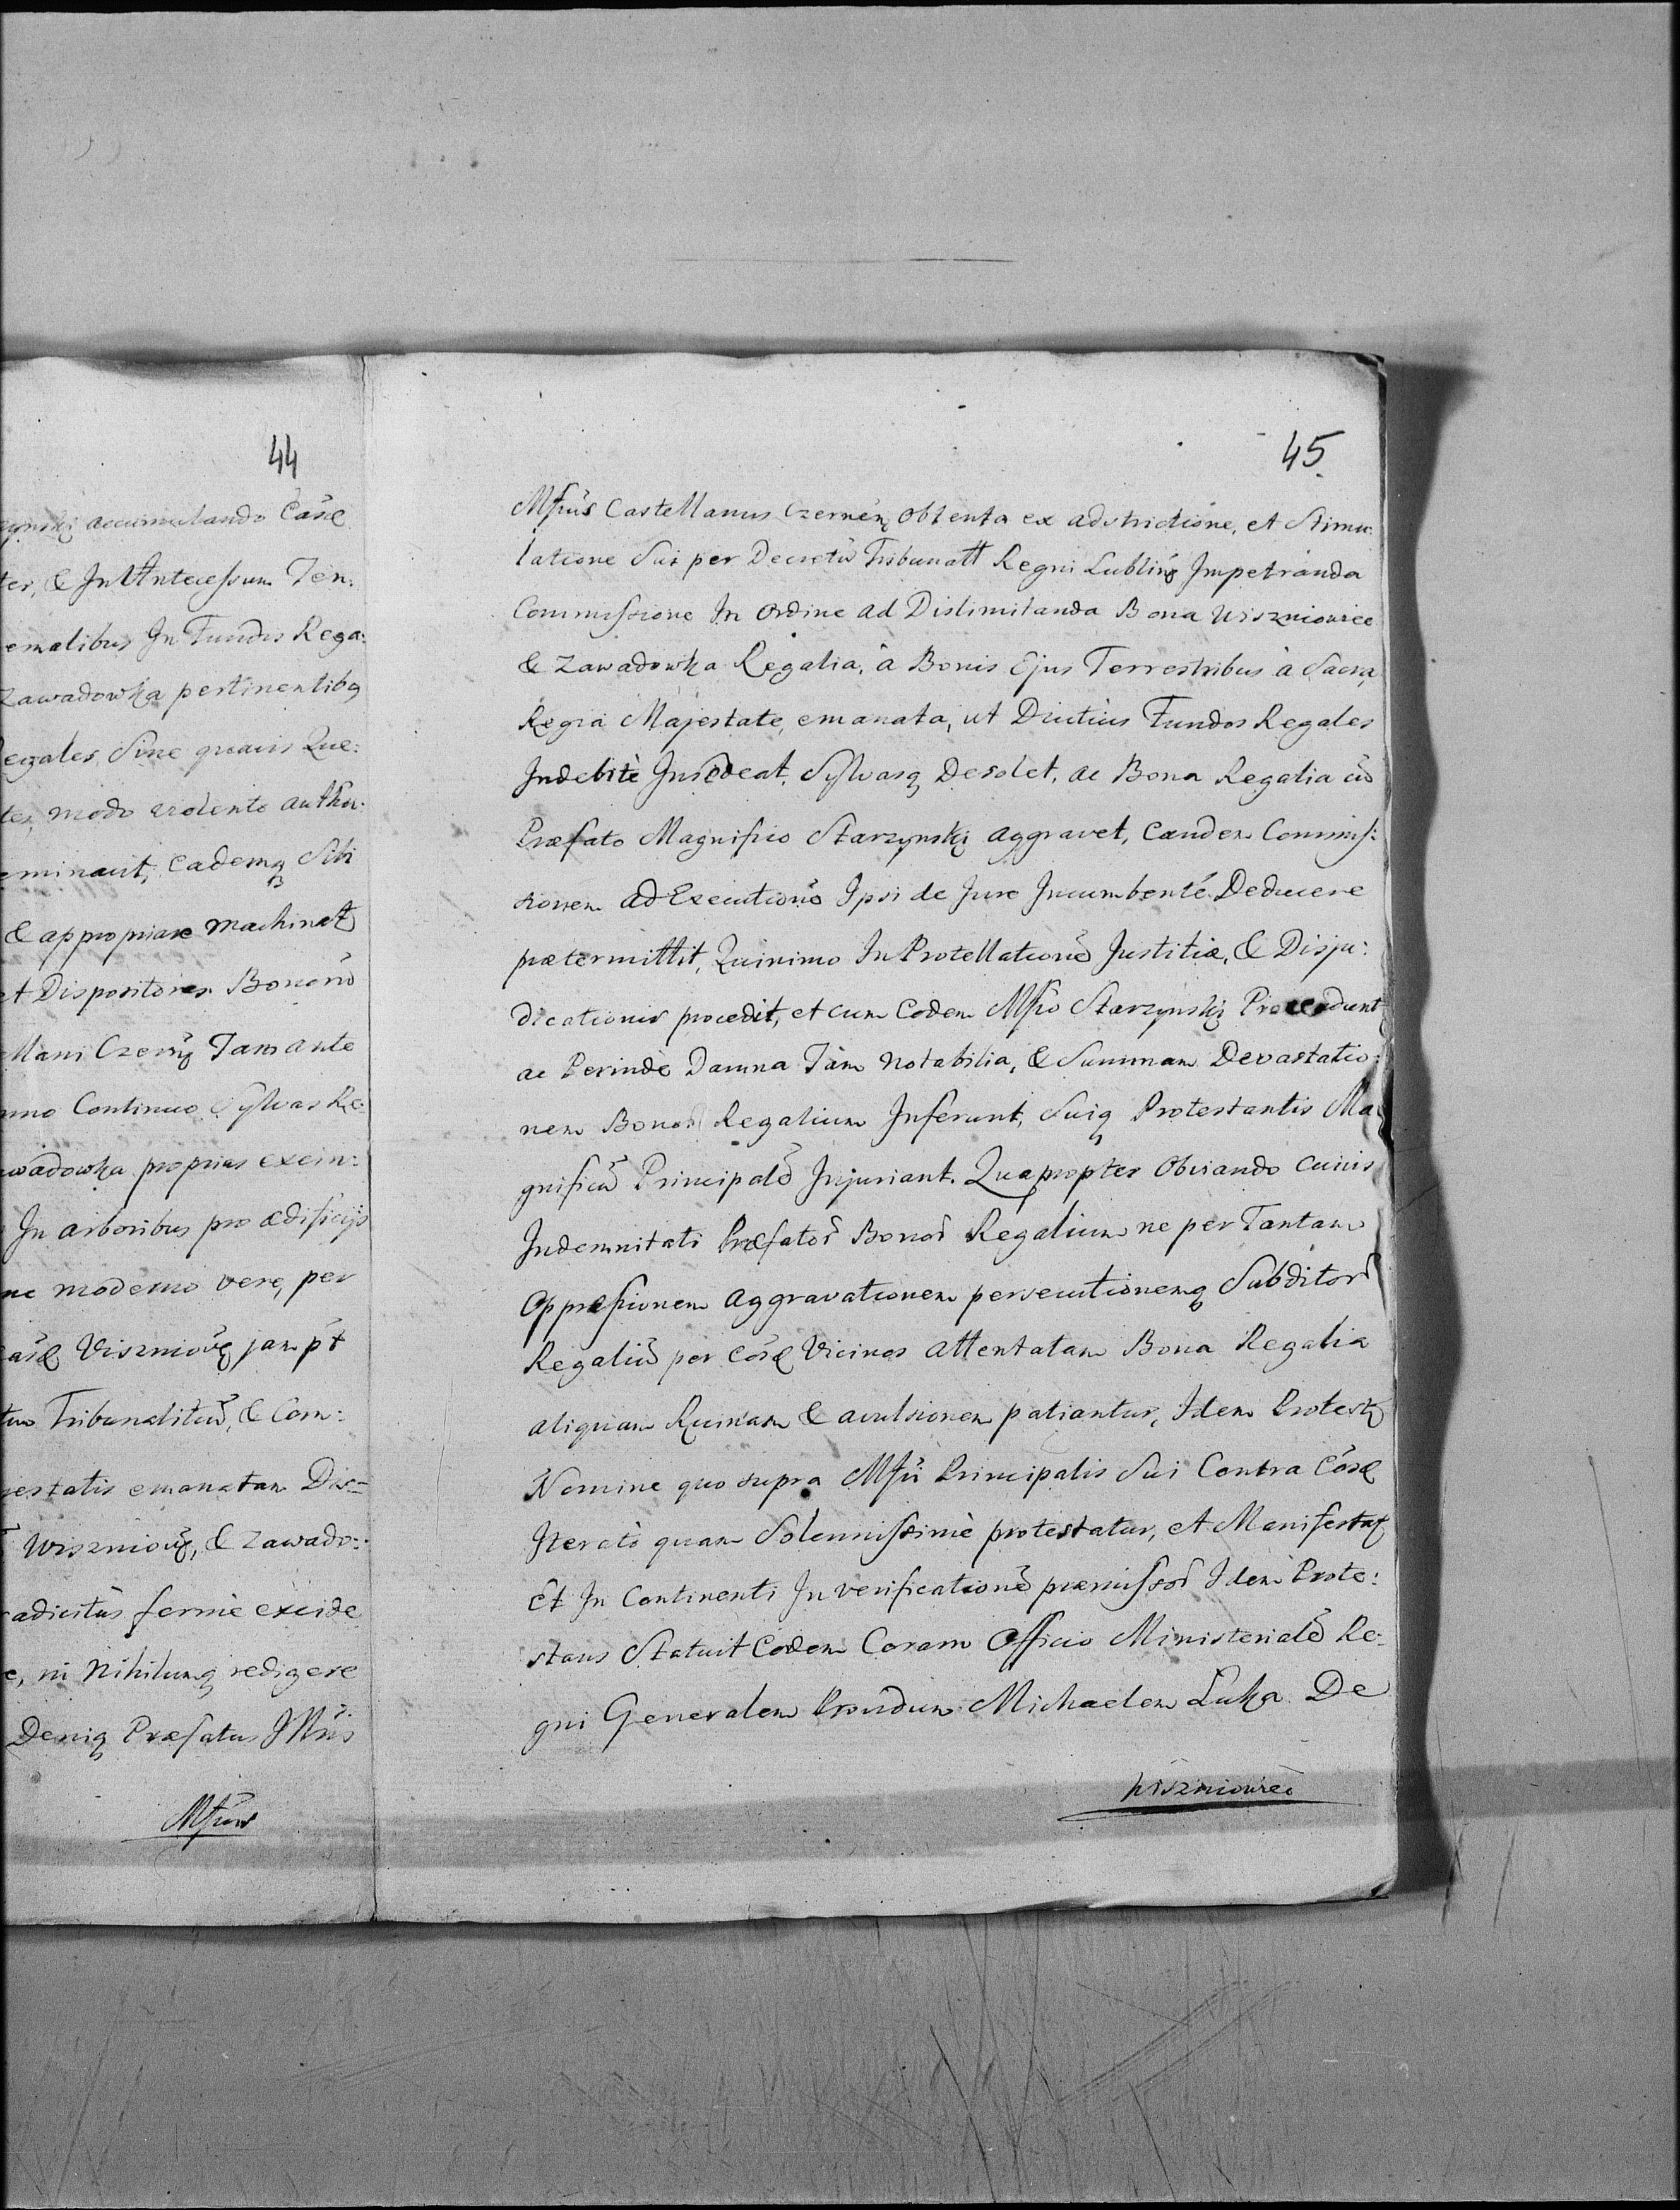 44
accumulando Cas̃e
ter, & In Antecessum Ten:
emalibus In Fundis Rega:
Zawadowka pertinentibq
egales, Sine quavis Que:
tes, modo violento autho:
eminavit, eademq Sibi
& appropriare machinat
et Dispositores Bonorũ
llani Czerñ Jam ante
nno Continuo Sylvas Re:
wadowka proprias exein:
In arboribus pro ædificijs
ne moderno vere, per
Viszniov̄ jam
tum Tribunalitiũ, & Com:
jestatis emanatam Dis:
Wisznioṽ, & Zawado:
radicitus fermè excide
e, in Nihilumq redigere
Deniq Præfatus
Mf̃cus
45
Mf̃cus Castellanus Czerneñ, obtenta ex adstrictione, et Stimu:
latione Sui per Decretũ Tribunatt Regni Lubliñ Impetranda
Commissione In Ordine ad Dislimitanda Bona Wiszniowiec
& Zawadowka Regalia, à Bonis Ejus Terrestribus à Sacra
Regia Majestate emanata, ut Diutius Fundos Regales
Indebitè Insideat, Sylvasq Desolet, ac Bona Regalia cũ
Præfato Magnifico Starzynski aggravet, eandem Commis:
sionem ad Executionẽ Ipsi de Jure Incumbentẽ Deducere
prætermittit, Quinimo In Protellationẽ Justitiæ, & Disju:
dicationis procedit, et cum Eodem Mf̃co Starzynski Procedunt
ac Perindè Damna Tàm notabilia, & Summam Devastatio:
nem Bonor̃ Regalium Inferunt, Suiq Protestantis Ma
gnificũ Principalẽ Injuriant. Quapropter Obviando cuivis
Indemnitati Præfator̃ Bonor̃ Regalium ne per Tantam
Oppræssionem aggravationem persecutionemq Subditor̃
Regaliũ per Eos̃e Vicinos attentatam Bona Regalia
aliquam Ruinam & avulsionem patiantur, Idem Protesñ
Nomine quo supra Mf̃ci Principalis Sui Contra Eos̃e
Iteratò quam Solennissimè protestatur, et Manifestat
Et In Continenti In verificationẽ præmissor̃ Idem Prote:
stans Statuit Eodem Coram Officio Ministerialẽ Re:
gni Generalem Providum Michaelem Luka De
Wiszniowiec